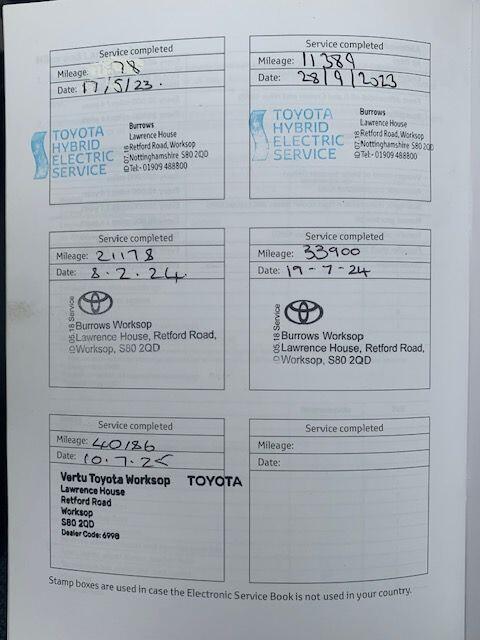 Service completed
Mileage: 78
Date: 17/5/23.
TOYOTA
HYBRID
ELECTRIC
SERVICE
Burrows
Lawrence House
Retford Road, Worksop
Nottinghamshire S80 2QD
Tel:- 01909 488800
Service completed
Mileage: 11389
Date: 28/9/2023
TOYOTA
HYBRID
ELECTRIC
SERVICE
Burrows
Lawrence House
Retford Road, Worksop
Nottinghamshire S80 2QD
Tel:- 01909 488800
Service completed
Mileage: 21178
Date: 8.2.24.
05.18 Service
Burrows Worksop
Lawrence House, Retford Road,
Worksop, S80 2QD
Service completed
Mileage: 33900
Date: 19-7-24
05.18 Service
Burrows Worksop
Lawrence House, Retford Road,
Worksop, S80 2QD
Service completed
Mileage: 40186
Date: 10.7.25
Vertu Toyota Worksop TOYOTA
Lawrence House
Retford Road
Worksop
S80 2QD
Dealer Code: 6998
Service completed
Mileage:
Date:
Stamp boxes are used in case the Electronic Service Book is not used in your country.